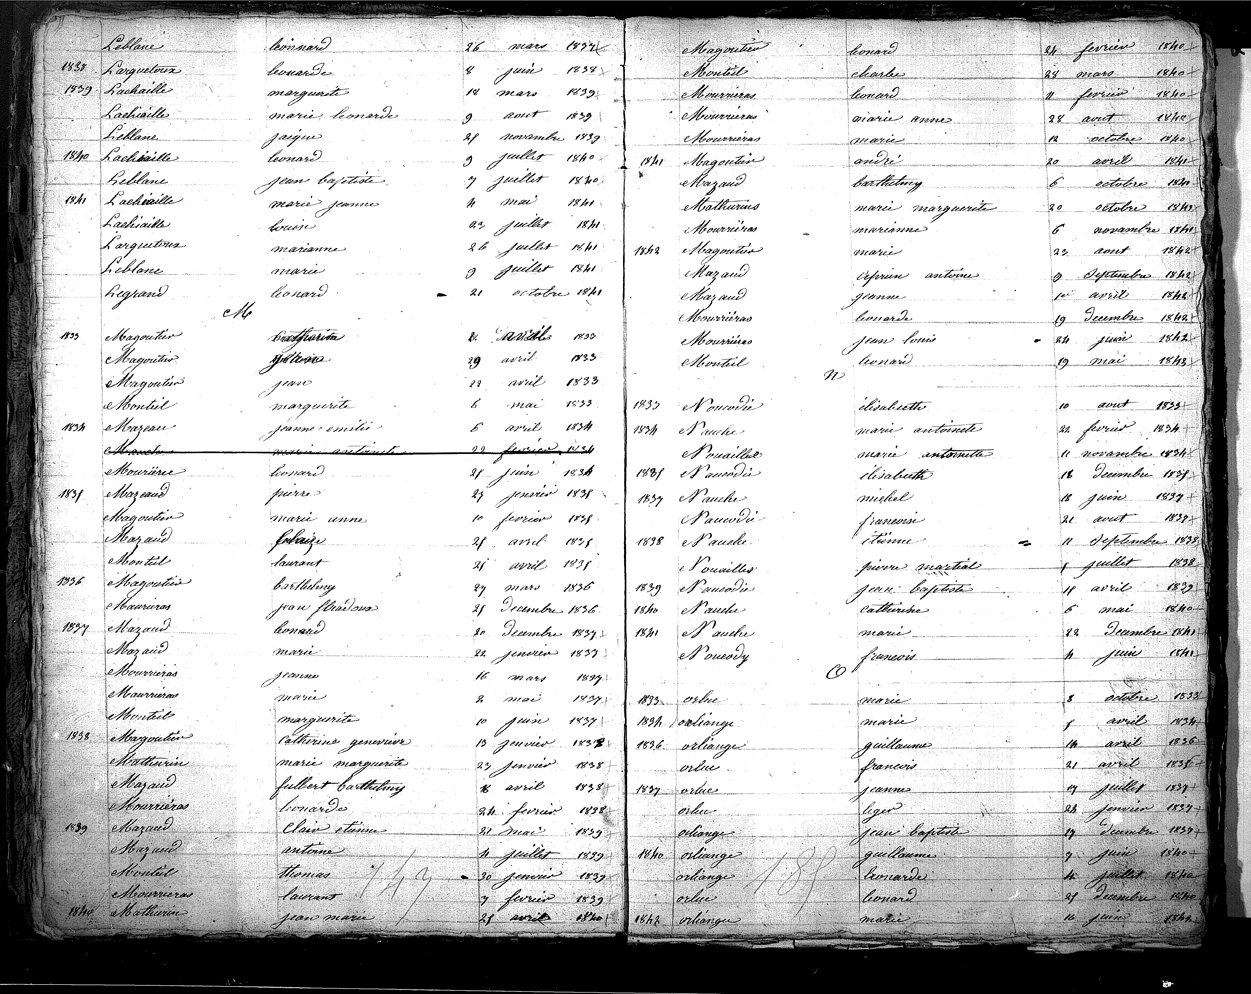 Leblanc leonnard 26 mars 1837
1838 Larquetoux leonarde 8 juin 1838
1839 Lachaille marguerite 18 mars 1839
Lachiaille marie leonarde 9 aout 1839
Leblanc jaique 25 novambre 1839
1840 Lachiaille leonard 9 juillet 1840
Leblanc jean baptiste 7 juillet 1840
1841 Lachiaille marie jeanne 4 mai 1841
Lachiaille louise 23 juillet 1841
Larquetoux marianne 26 juillet 1841
Leblanc marie 9 juillet 1841
Legrand leonard 21 octobre 1841
M
1833 Magoutier catherine 2 avril 1833
Magoutier 29 avril 1833
Magoutier jean 22 avril 1833
Monteil marguerite 6 mai 1833
1834 Mazeau jeanne emelie 6 avril 1834
marie antoinete 22 fevrier 1834
Mourièrce leonard 25 juin 1834
1835 Mazeaud pierre 27 jenvier 1835
Magoutier marie anne 10 fevrier 1835
Mazaud 25 avril 1835
Monteil laurant 25 avril 1835
1836 Magoutier barthelmy 27 mars 1836
Maurieras jean 25 decembre 1836
1837 Mazaud leonard 20 decembre 1837
Mazaud marie 22 jenvier 1837
Mourrieras jeanne 16 mars 1837
Maurrieras marie 2 mai 1837
Monteil marguerite 10 juin 1837
1838 Magoutier catherine genevieve 13 jenvier 1838
Mathurin marie marguerite 23 jenvier 1838
Mazaud fulbert barthelmy 18 avril 1838
Mourriéras leonarde 24 fevrier 1838
1839 Mazaud clair etienne 21 mai 1839
Mazaud antoine 4 juillet 1839
Monteil thomas 30 jenvier 1839
Mourrieras laurant 7 fevrier 1839
1840 Mathurin jean marie 25 avril 1840
147
Magoutier leonard 24 fevrier 1840
Monteil charles 28 mars 1840
Mourrieras leonard 11 fevrier 1840
Mourriéras marie anne 28 aout 1840
Mourriéras marie 12 octobre 1840
1841 Magoutier andré 20 avril 1841
Mazaud barthelmy 6 octobre 1841
Mathurins marie marguerite 20 octobre 1841
Mourriéras marianne 6 novambre 1841
1842 Magoutier marie 23 aout 1842
Mazaud antoine 9 septembre 1842
Mazaud jeanne 10 avril 1842
Mourriéras leonarde 19 decembre 1842
Mourrieras jean louis 24 juin 1842
Monteil leonard 19 mai 1842
N
1833 Noucodie élisabeth 10 aout 1833
1834 Nauche marie antoinete 22 fevrier 1834
Nouailles marie antoinette 11 novembre 1834
1835 Naucodie élisabeth 18 decembre 1835
1837 Nauche michel 18 juin 1837
Naucodie francoise 21 aout 1837
1838 Nauche étienne 11 septembre 1838
Nouailles pierre martial 5 juillet 1838
1839 Naucodie jean baptiste 15 avril 1839
1840 Nauche catherine 6 mai 1840
1841 Nauche marie 22 decembre 1841
Noucody francois 4 juin 1841
O
1833 orluc marie 8 octobre 1833
1834 orliange marie 5 avril 1834
1836 orliange guillaume 14 avril 1836
orluc francois 21 avril 1836
1837 orluc jeanne 17 juillet 1837
orluc leger 24 jenvier 1837
orliange jean baptiste 17 decembre 1837
1840 orliange guillaume 7 juin 1840
orliange leonarde 4 juillet 1840
orluc leonard 25 decembre 1840
1842 orliange marie 16 juin 1842
185